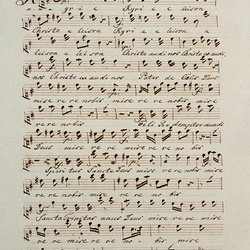 e e e Kyri e e leison
Christe e leison Kyri e e leison
e leison e leison Christe audi nos Christe exaudi
nos Christe exaudi nos Pater de Coelis Deus
mise re re nobis mise re re nobis mise re
re re nobis Fi li Redemptor mundi
Deus mise re re mise re re re no bis
Spiritus Sancte Deus mise re re mise re
re re nobis mise re re no bis
Sancta Trinitas unus Deus mise re re mise
re re mise re re no bis mise re re